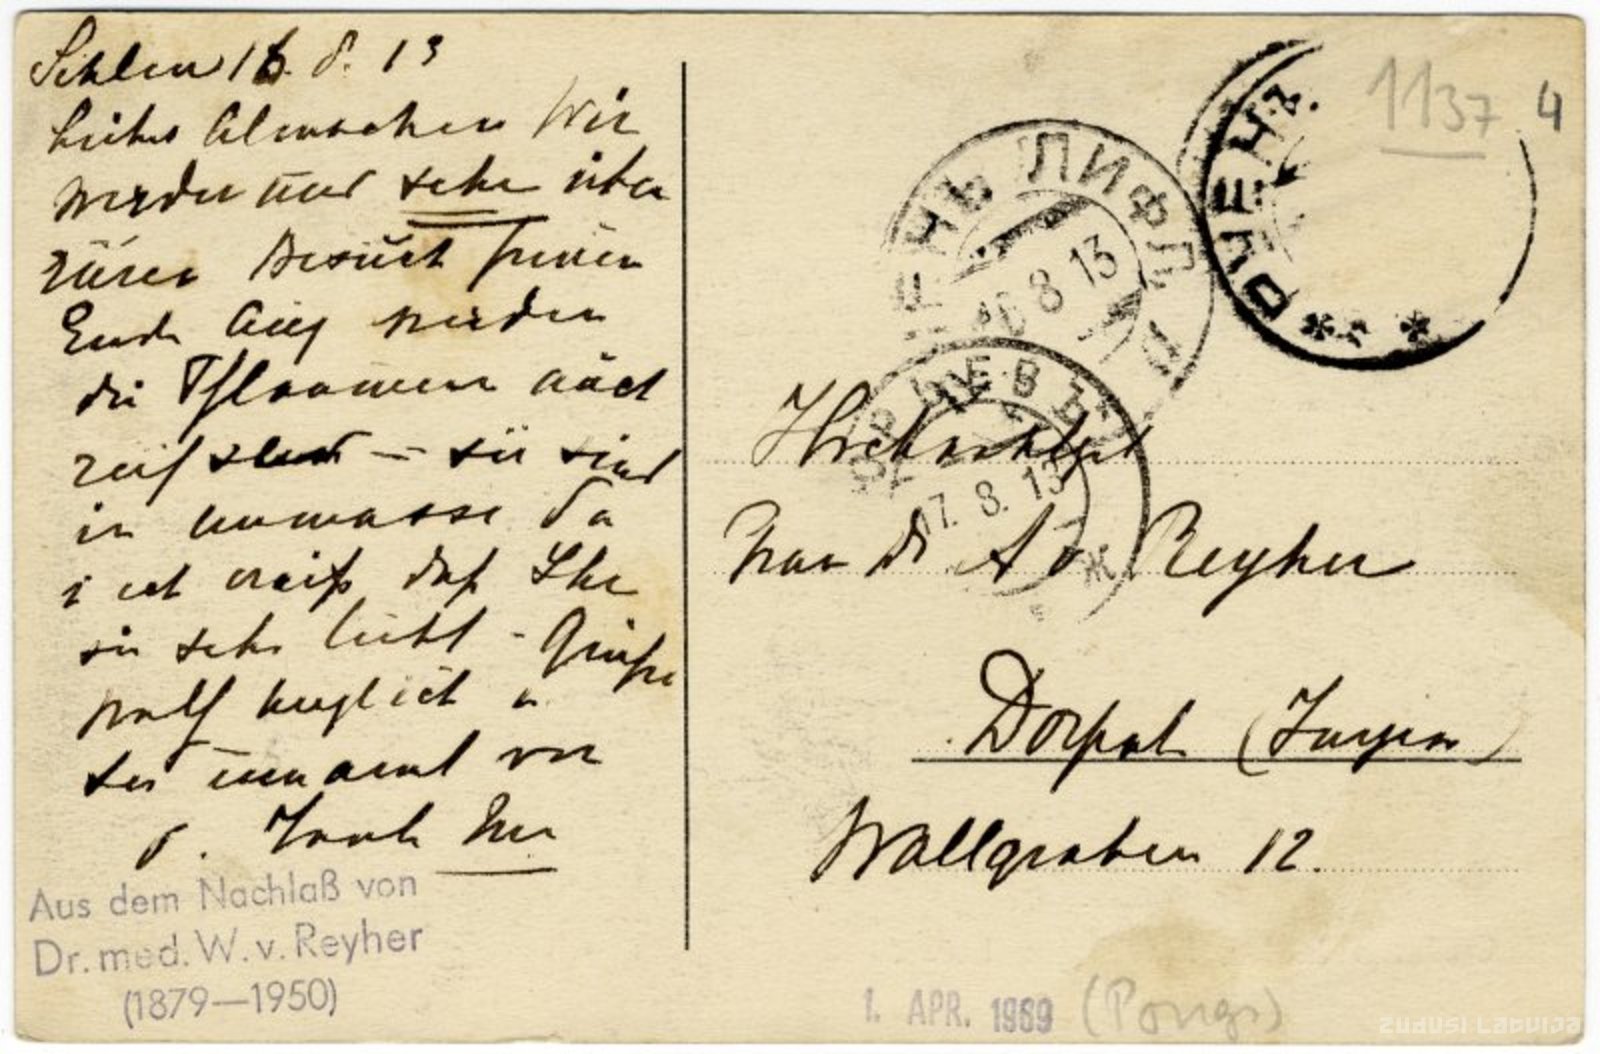 Sehlen 16. 8. 13
Wir
werden uns sehr über
Besuch freuen
Ende Aug werden
die Pflaumen auch
reif – sie sind
in unmasse da
ich weiß daß Ihr
sie sehr liebt – Grüße
Wolf u
sei umarmt von
d. Tante
Aus dem Nachlaß von
Dr. med. W. v. Reyher
(1879—1950)
1137 4
ЕНЬ ЛИФЛ
8 13
РЬЕВЪ
17. 8. 13
Ж
Hochwohlgeb
Frau Dr A v Reyher
Dorpat (Jurjew)
Wallgraben 12.
1. APR. 1969 (Pongs)
ZUDUSI LATVIJA